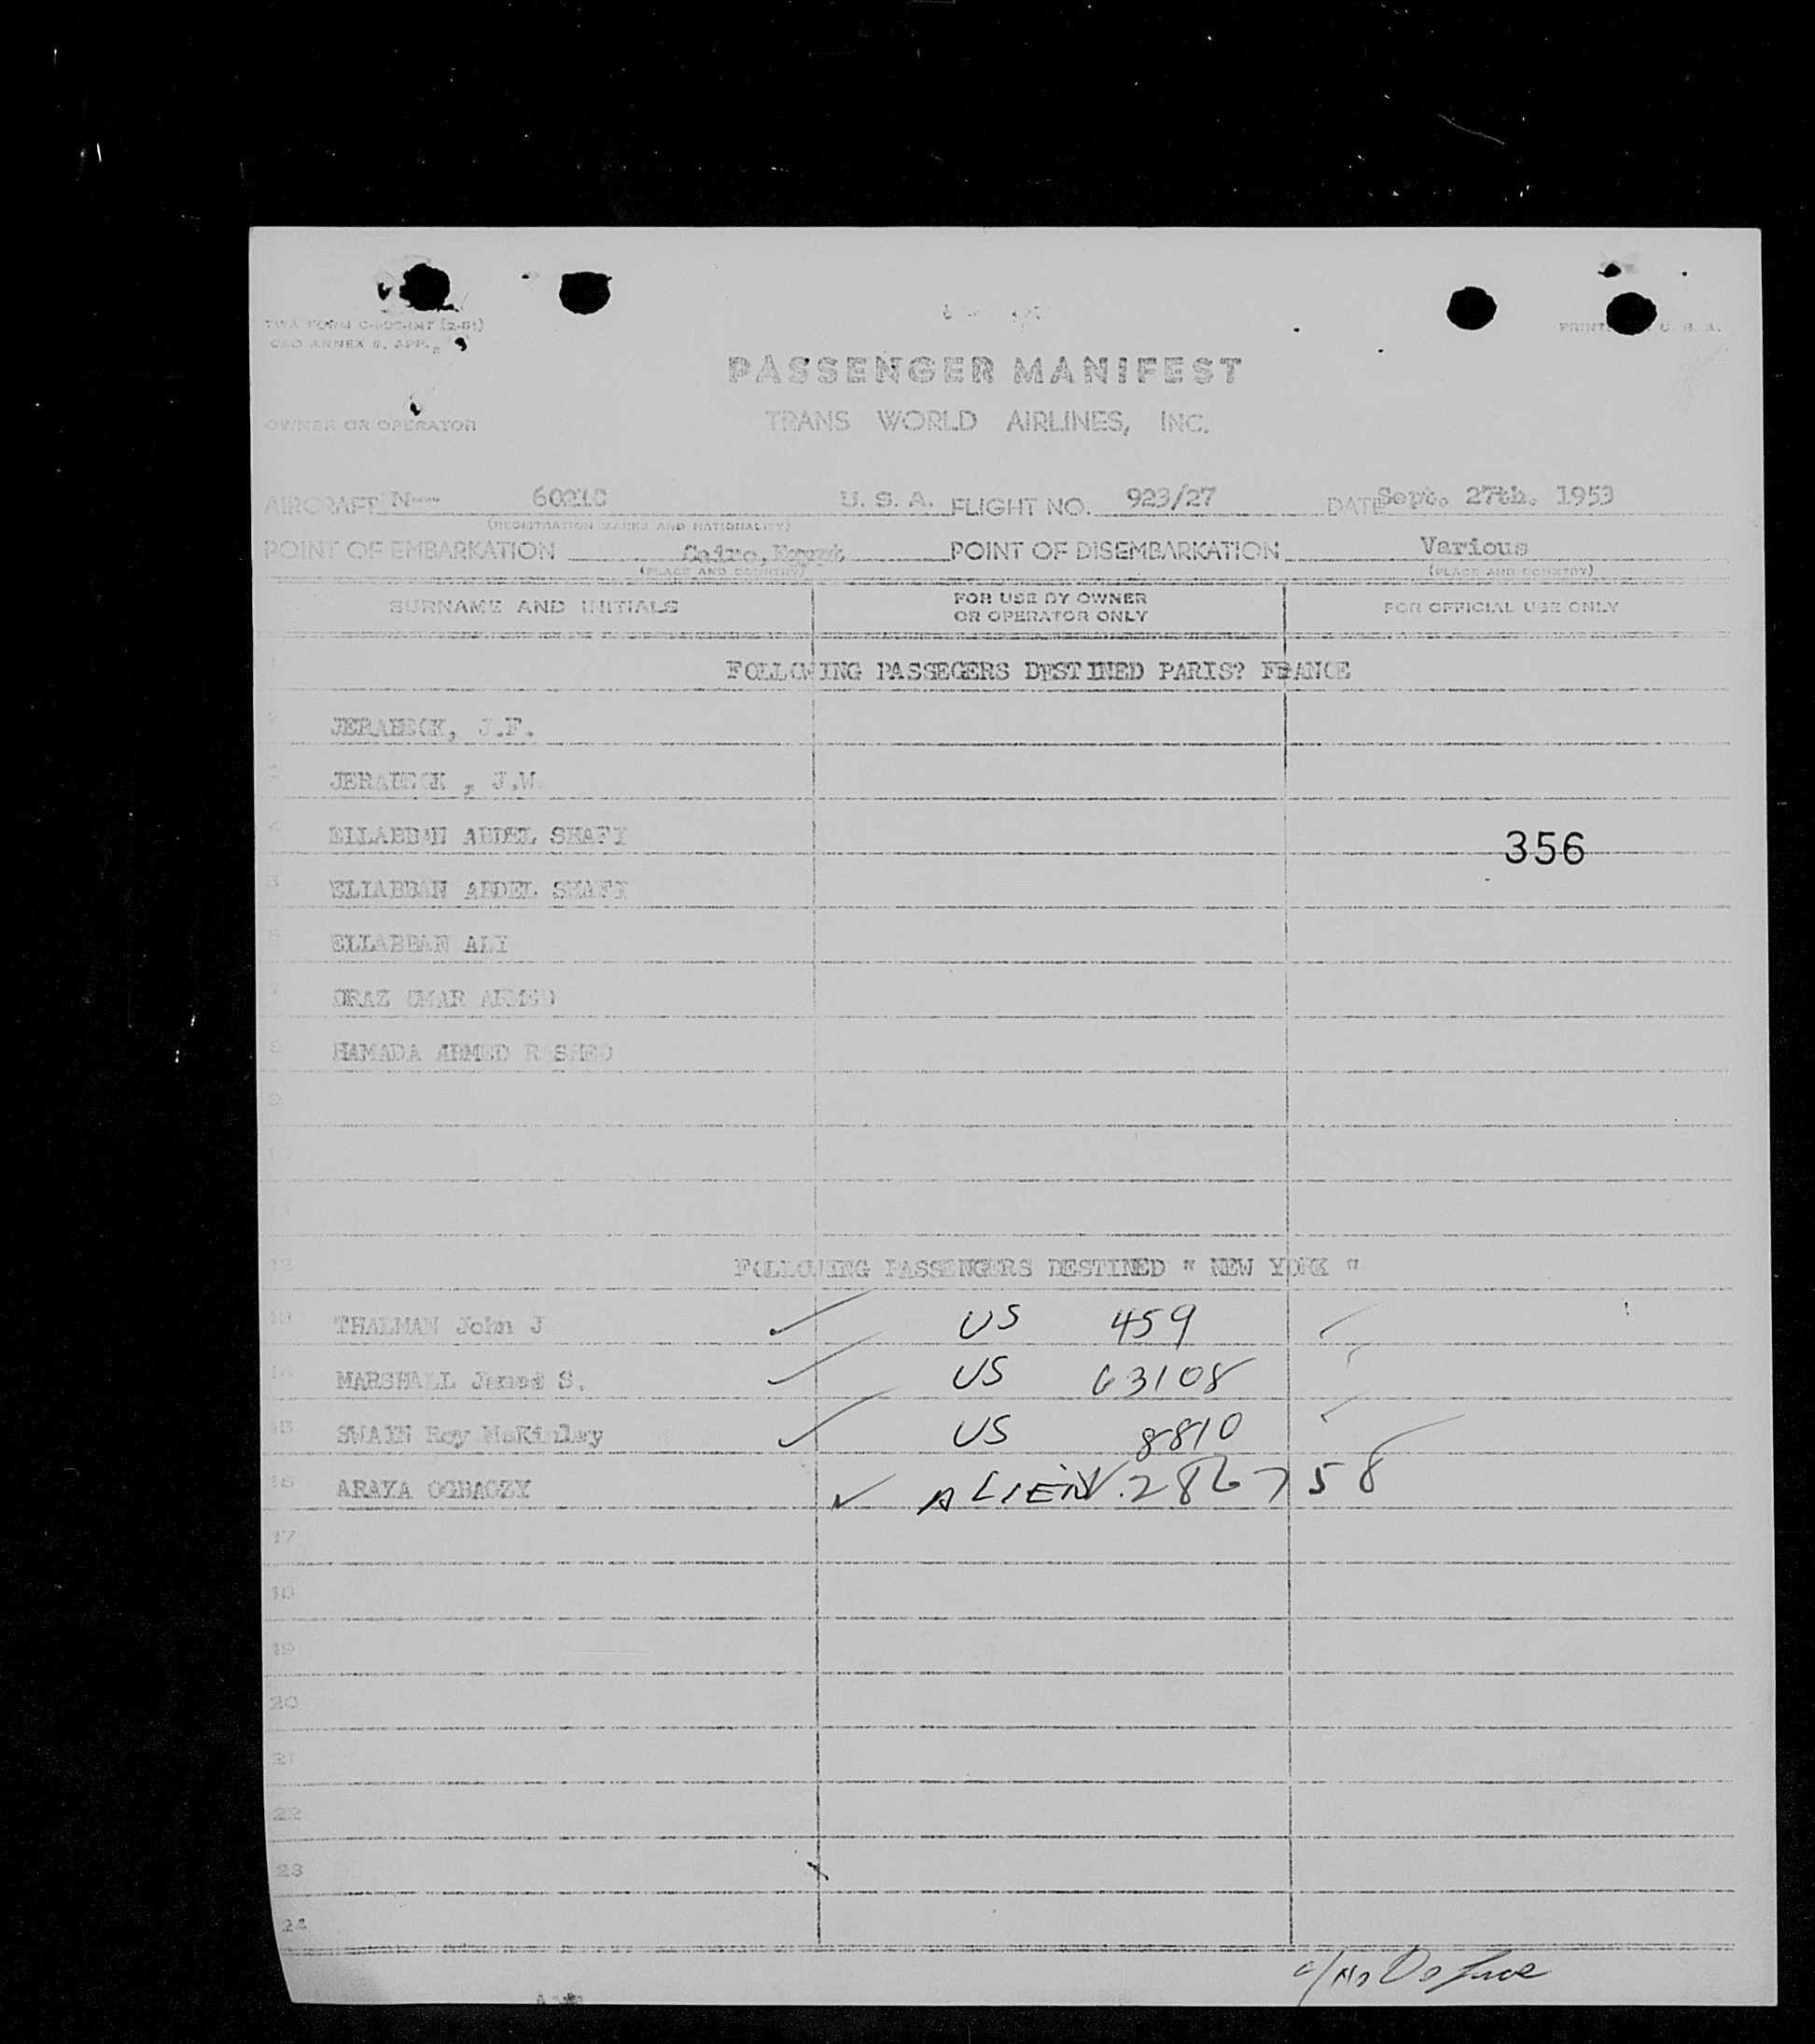 TWA FORM
PRINTED U. S. A.
PASSENGER MANIFEST
OWNER OR OPERATOR
TRANS WORLD AIRLINES, INC.
AIRCRAFT N--- 6021C U. S. A. FLIGHT NO. 923/27 DATE Sept. 27th. 1953
(REGISTRATION MARKS AND NATIONALITY)
POINT OF EMBARKATION Cairo, Egypt POINT OF DISEMBARKATION Various
(PLACE AND COUNTRY) (PLACE AND COUNTRY)
SURNAME AND INITIALS FOR USE BY OWNER OR OPERATOR ONLY FOR OFFICIAL USE ONLY
1 FOLLOWING PASSEGERS DESTINED PARIS? FRANCE
2 JERABECK, J.F.
3 JERABECK , J.W.
4 ELLABBAN ABDEL SHAFI 356
5 ELLABBAN ABDEL SHAFI
6 ELLABBAN ALI
7 ORAZ OMAR AHMED
8 HAMADA AHMED RASHED
9
10
11
12 FOLLOWING PASSENGERS DESTINED " NEW YORK "
13 THALMAN John J ✓ US 459 ✓
14 MARSHALL James S. ✓ US 63108 ✓
15 SWAIN Roy McKinley ✓ US 8810 ✓
16 ARAYA OGBAGZY ✓ ALIEN. 286758
17
18
19
20
21
22
23
24